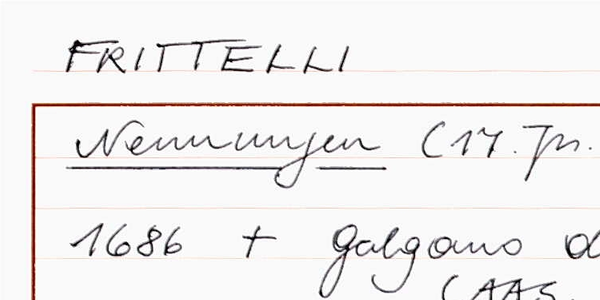 FRITTELLI
Nennungen (17. Jh.
1686 + Galgano d
(AAS.